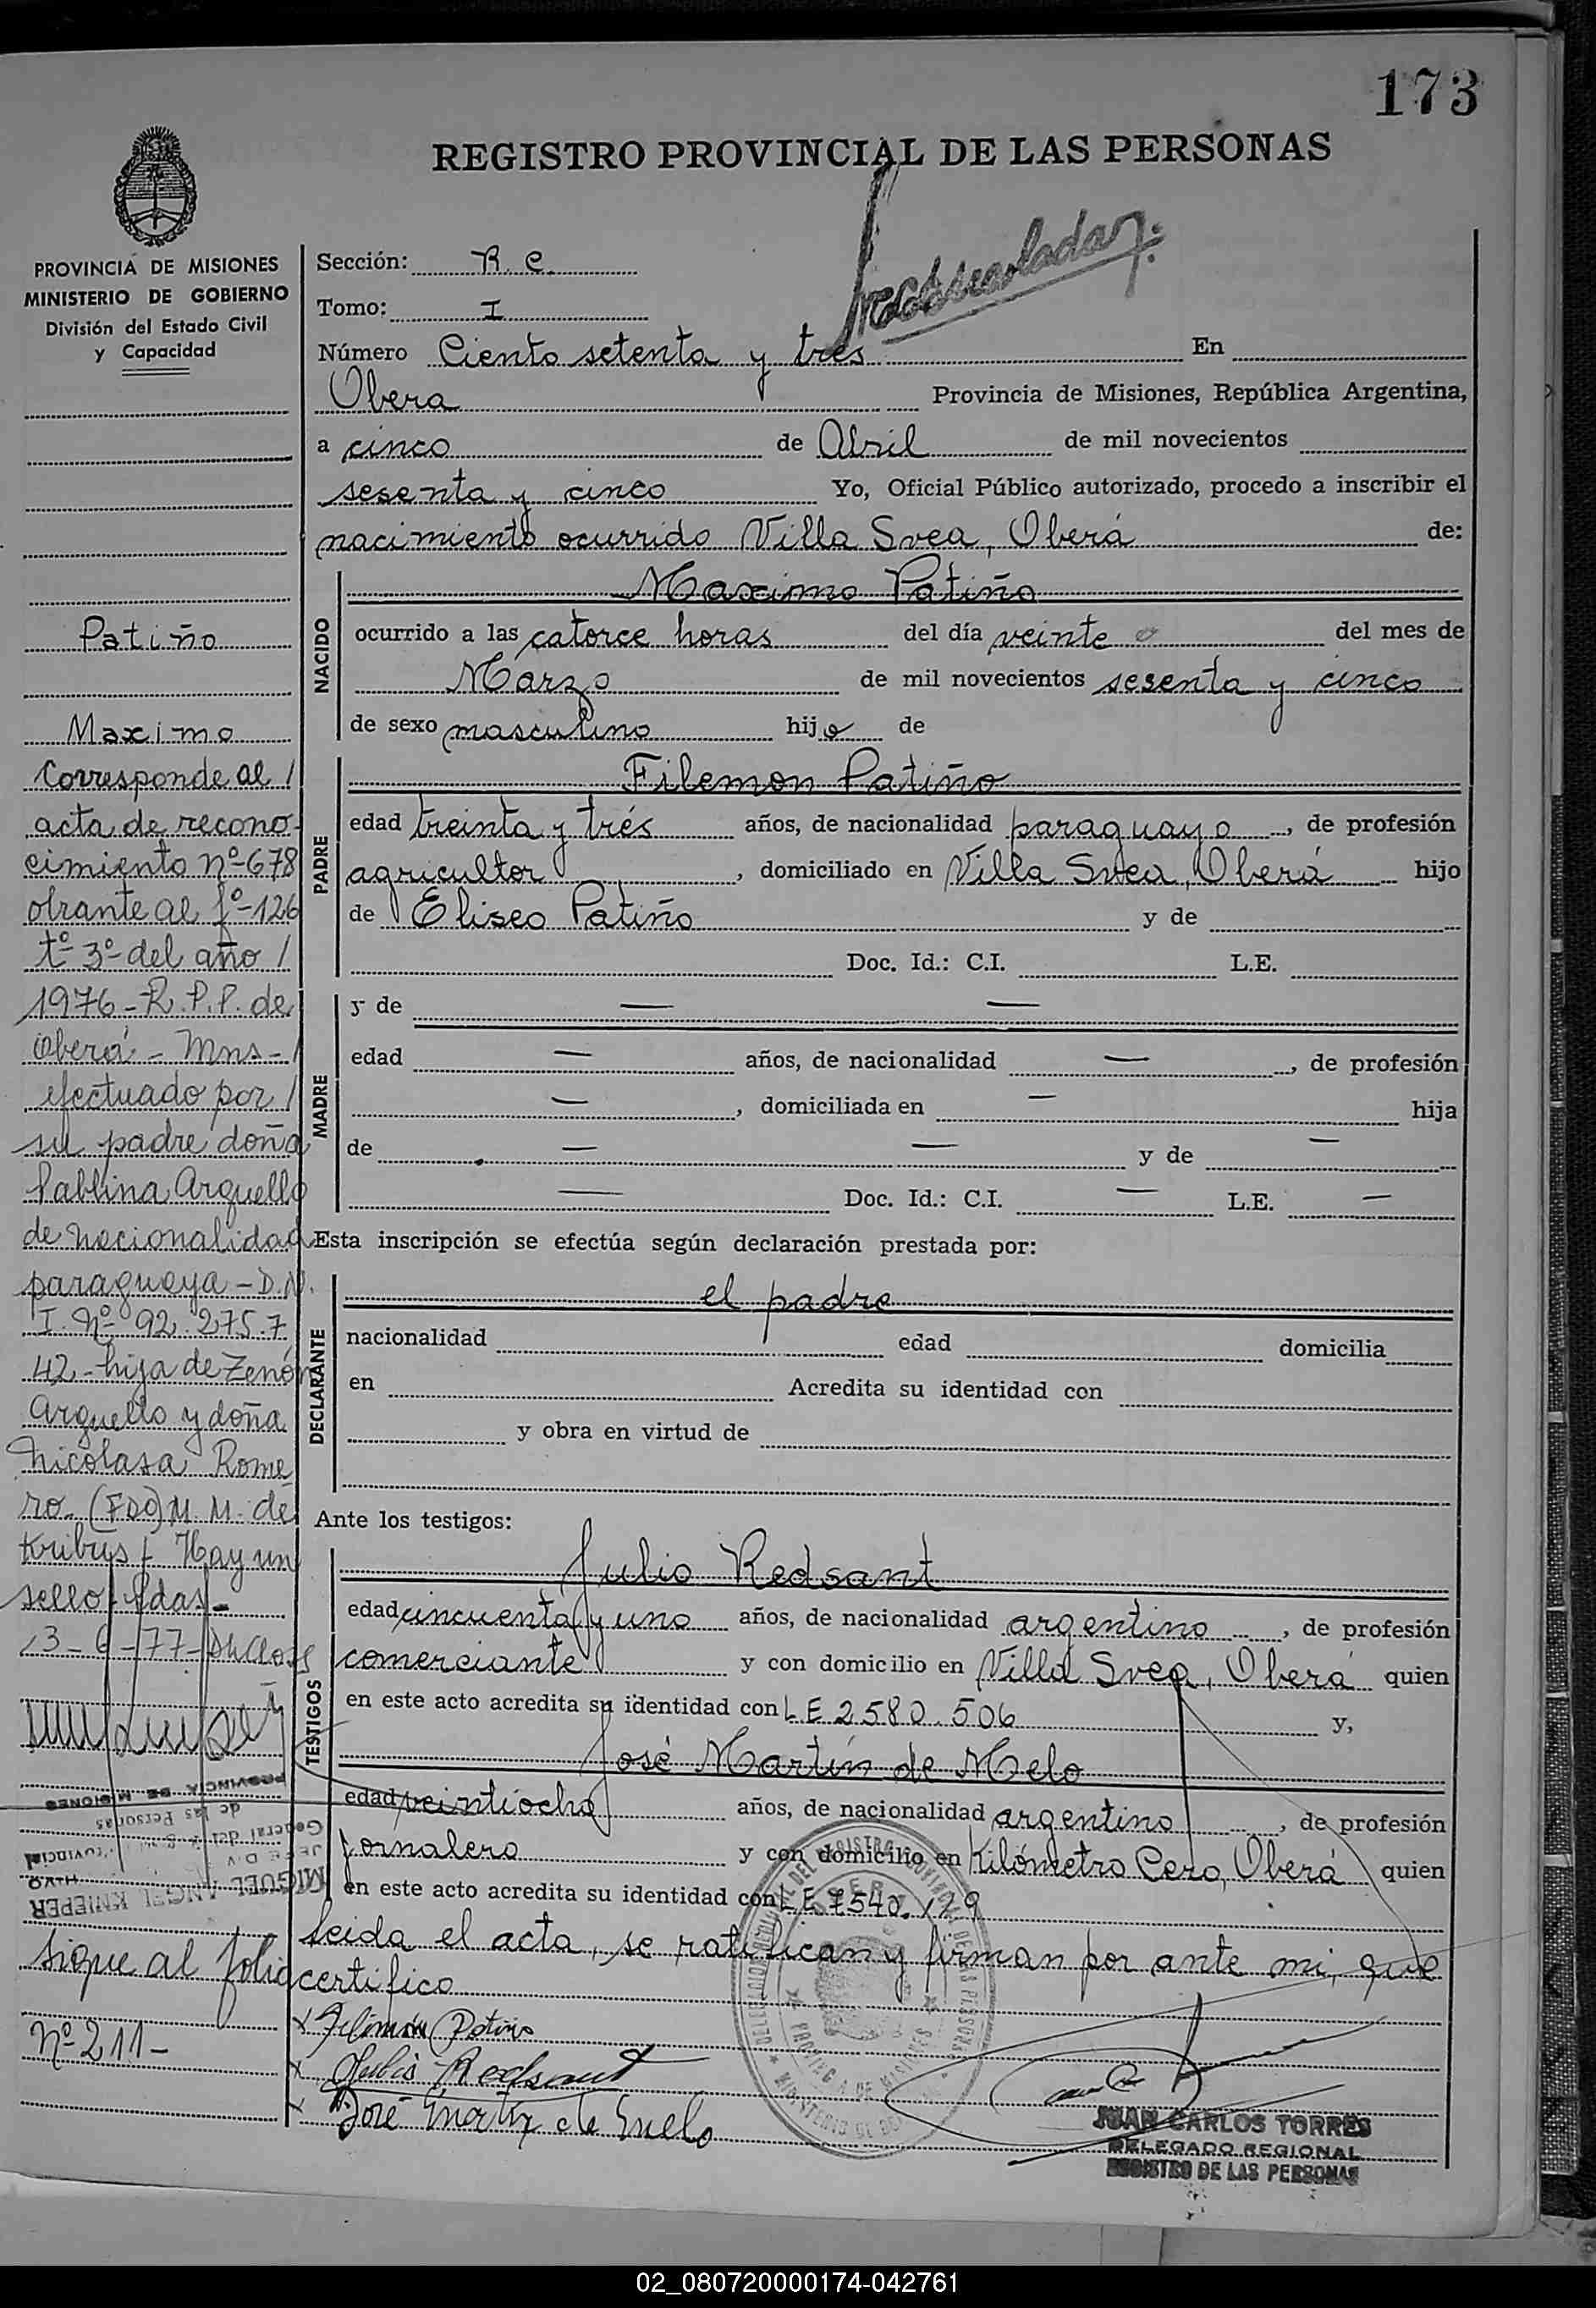 173
REGISTRO PROVINCIAL DE LAS PERSONAS
PROVINCIA DE MISIONES
MINISTERIO DE GOBIERNO
División del Estado Civil
y Capacidad
Patiño
Maximo
Corresponde al /
acta de recono-
cimiento nº 678
obrante al fº 126
tº 3º del año /
1976 - R.P.P. de
Oberá - Mns - /
efectuado por /
su padre doña
Pablina Arguello
de nacionalidad
paraguaya - D.N.
I. Nº 92.275.7
42 - hija de Zenón
Arguello y doña
Nicolasa Rome
ro. (FDO) M. M. de
Kribus - Hay un
sello - Pdas -
13-6-77-
PROVINCIA DE MISIONES
de las Personas
General del Provincial
JEFE DIV
MIGUEL ANGEL KNIEPER
Sigue al folio
Nº 211-
Sección: R. C.
Tomo: I
Número Ciento setenta y tres En
Obera Provincia de Misiones, República Argentina,
a cinco de Abril de mil novecientos
sesenta y cinco Yo, Oficial Público autorizado, procedo a inscribir el
nacimiento ocurrido Villa Svea, Oberá de:
NACIDO
Maximo Patiño
ocurrido a las catorce horas del día veinte del mes de
Marzo de mil novecientos sesenta y cinco
de sexo masculino hijo de
PADRE
Filemon Patiño
edad treinta y trés años, de nacionalidad paraguayo, de profesión
agricultor, domiciliado en Villa Svea, Oberá hijo
de Eliseo Patiño y de
Doc. Id.: C.I. L.E.
MADRE
y de —  —
edad — años, de nacionalidad —, de profesión
—, domiciliada en — hija
de — — y de —
— Doc. Id.: C.I. — L.E. —
Esta inscripción se efectúa según declaración prestada por:
DECLARANTE
el padre
nacionalidad edad domicilia
en Acredita su identidad con
y obra en virtud de
Ante los testigos:
TESTIGOS
Julio Redsant
edad cincuenta y uno años, de nacionalidad argentino, de profesión
comerciante y con domicilio en Villa Svea, Oberá quien
en este acto acredita su identidad con L E 2580.506 y,
José Martín de Melo
edad veintiocho años, de nacionalidad argentino, de profesión
jornalero y con domicilio en Kilómetro Cero, Oberá quien
en este acto acredita su identidad con L E 7540.129
Leida el acta, se ratifican y firman por ante mi, que
certifico
x Filemón Patiño
x Julio Redsant
x José Martin de Melo
JUAN CARLOS TORRES
DELEGADO REGIONAL
REGISTRO DE LAS PERSONAS
02_080720000174-042761